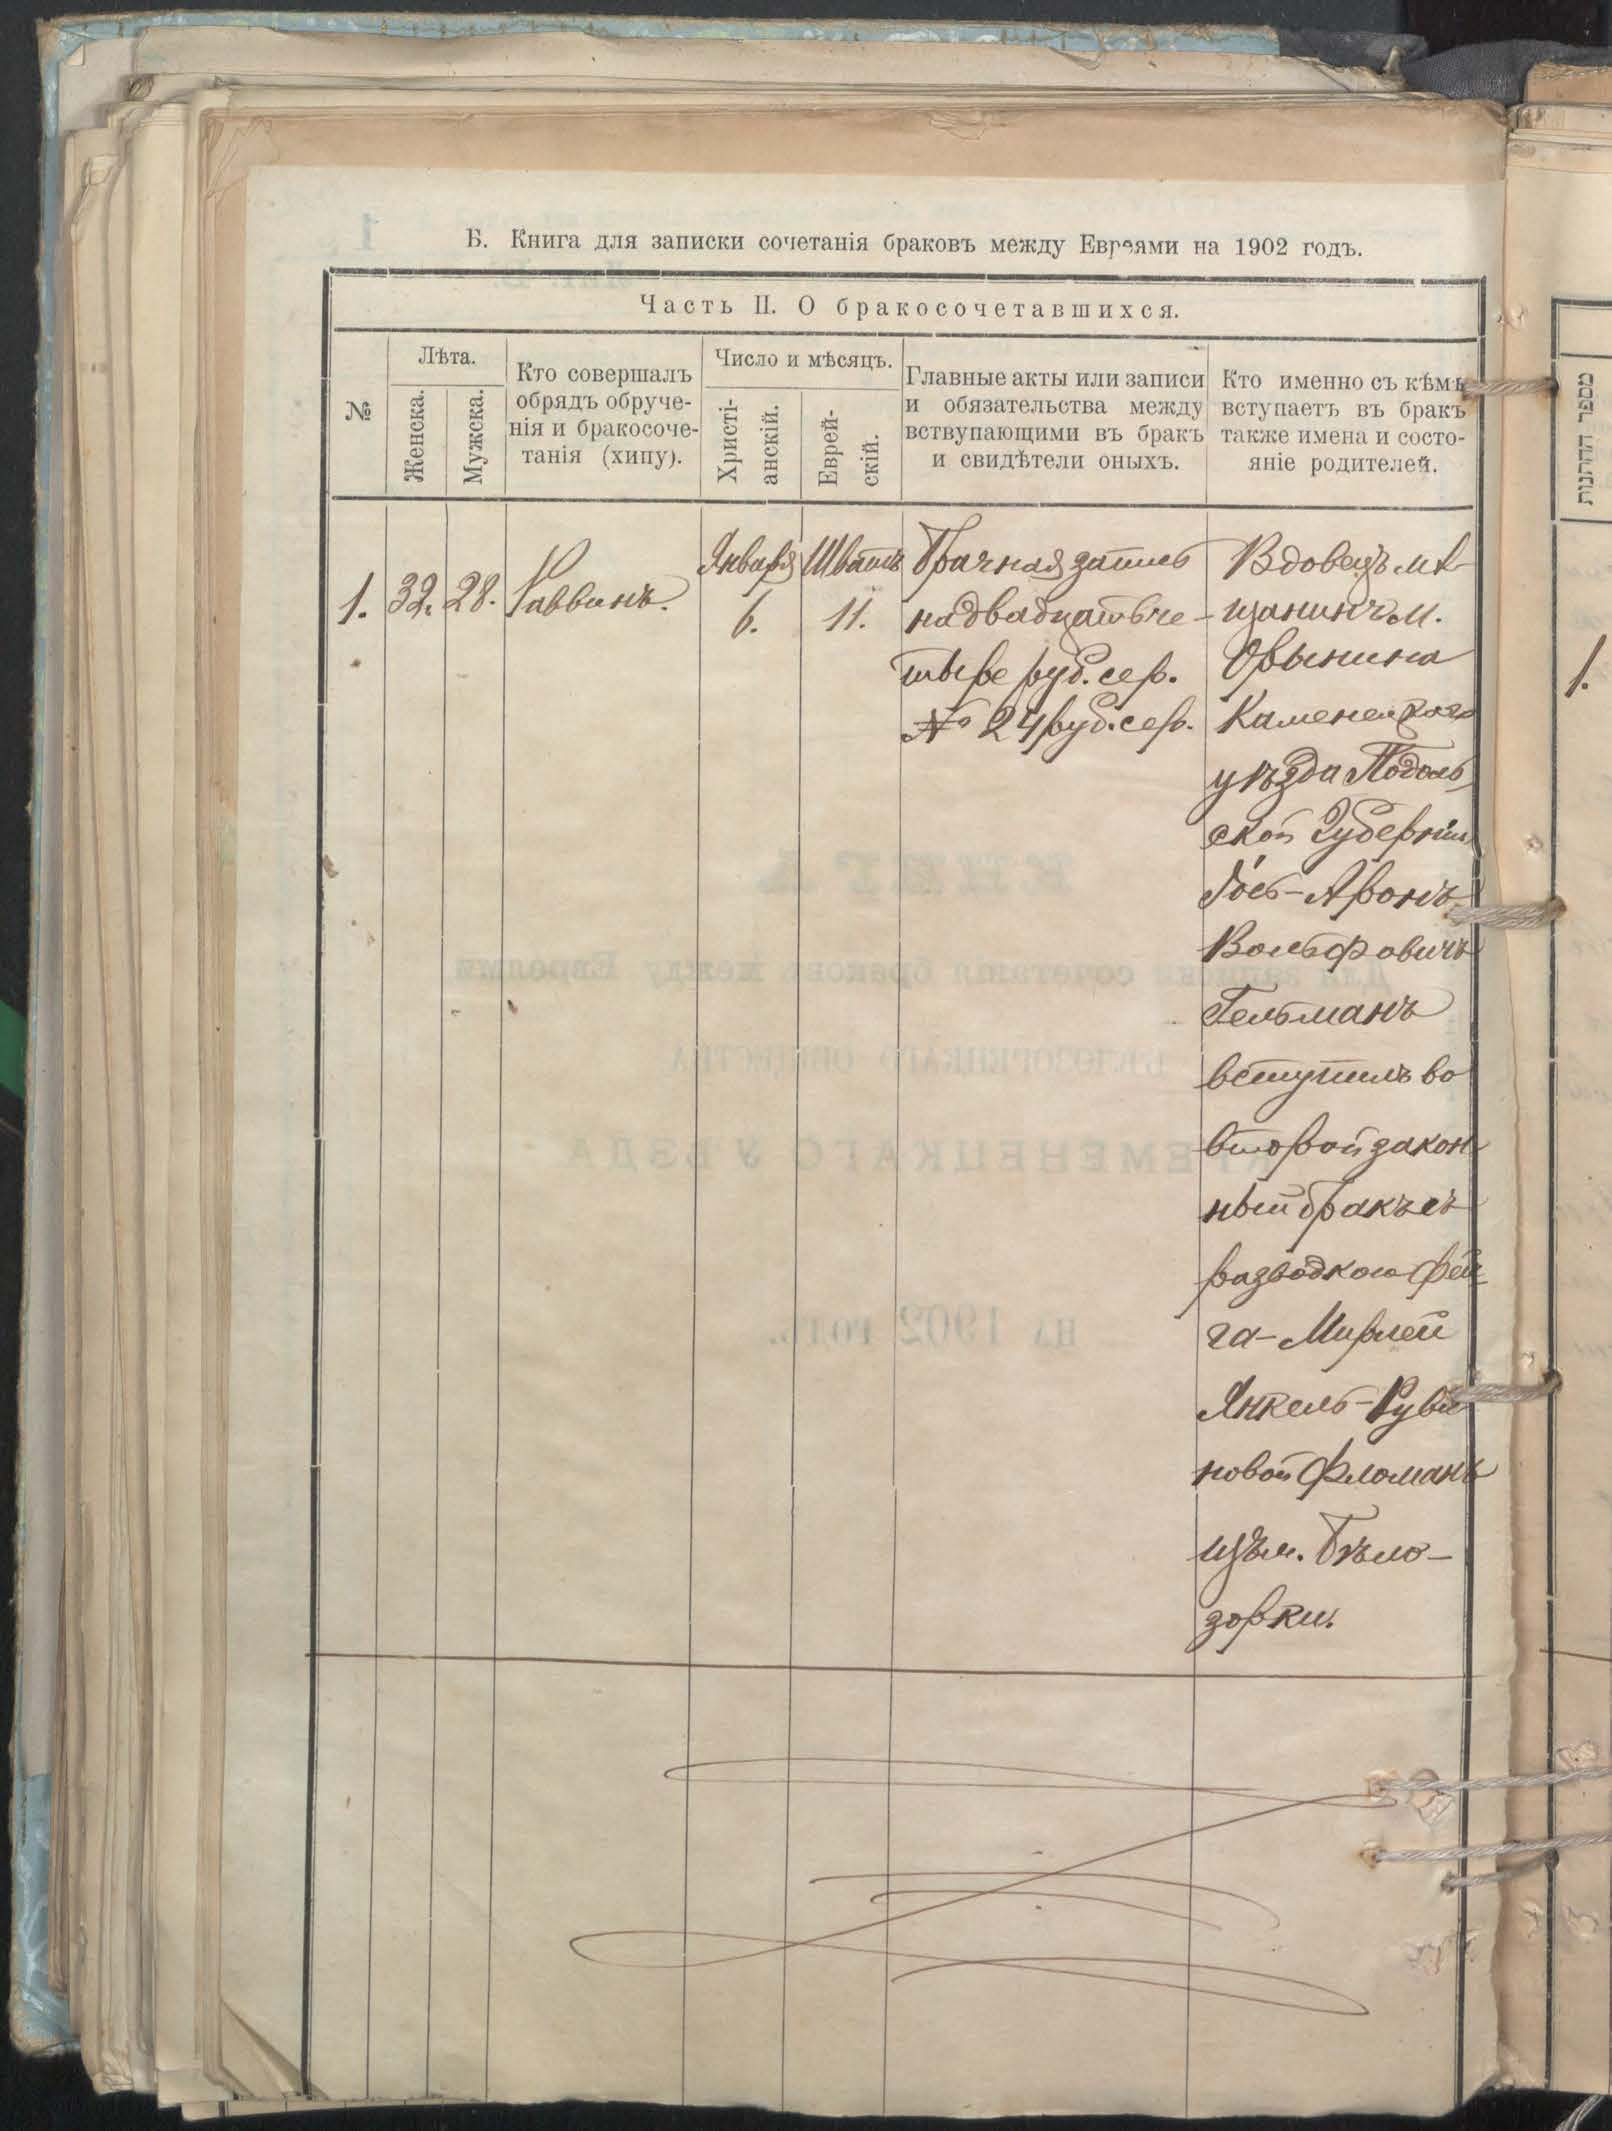 Б. Книга для записки сочетанія браковъ между Евреями на 1902 годъ.
Часть II. О бракосочетавшихся.
№
Лѣта.
Женска.
Мужска.
Кто совершалъ
обрядъ обруче-
нія и бракосоче-
танія (хипу).
Число и мѣсяцъ.
Христі-
анскій.
Еврей-
скій.
Главные акты или записи
и обязательства между
вствупающими въ бракъ
и свидѣтели оныхъ.
Кто именно съ кѣмъ
вступаетъ въ бракъ
также имена и состо-
яніе родителей.
1.
32.
28.
Раввинъ.
Января
6.
Шватъ
11.
Брачная запись
на двадцать че-
тыре руб. сер.
№ 24 руб. сер.
Вдовецъ мѣ-
щанинъ м.
Орынина
Каменецкаго
уѣзда Подоль
ской Губерніи
Іось-Аронъ
Вольфовичъ
Гельманъ
вступилъ во
второй закон
ный бракъ съ
разводкою Фей
га-Мирлей
Янкель-Руви
новой Фломанъ
изъ м. Бѣло-
зорки.
מספר החתנות
1.